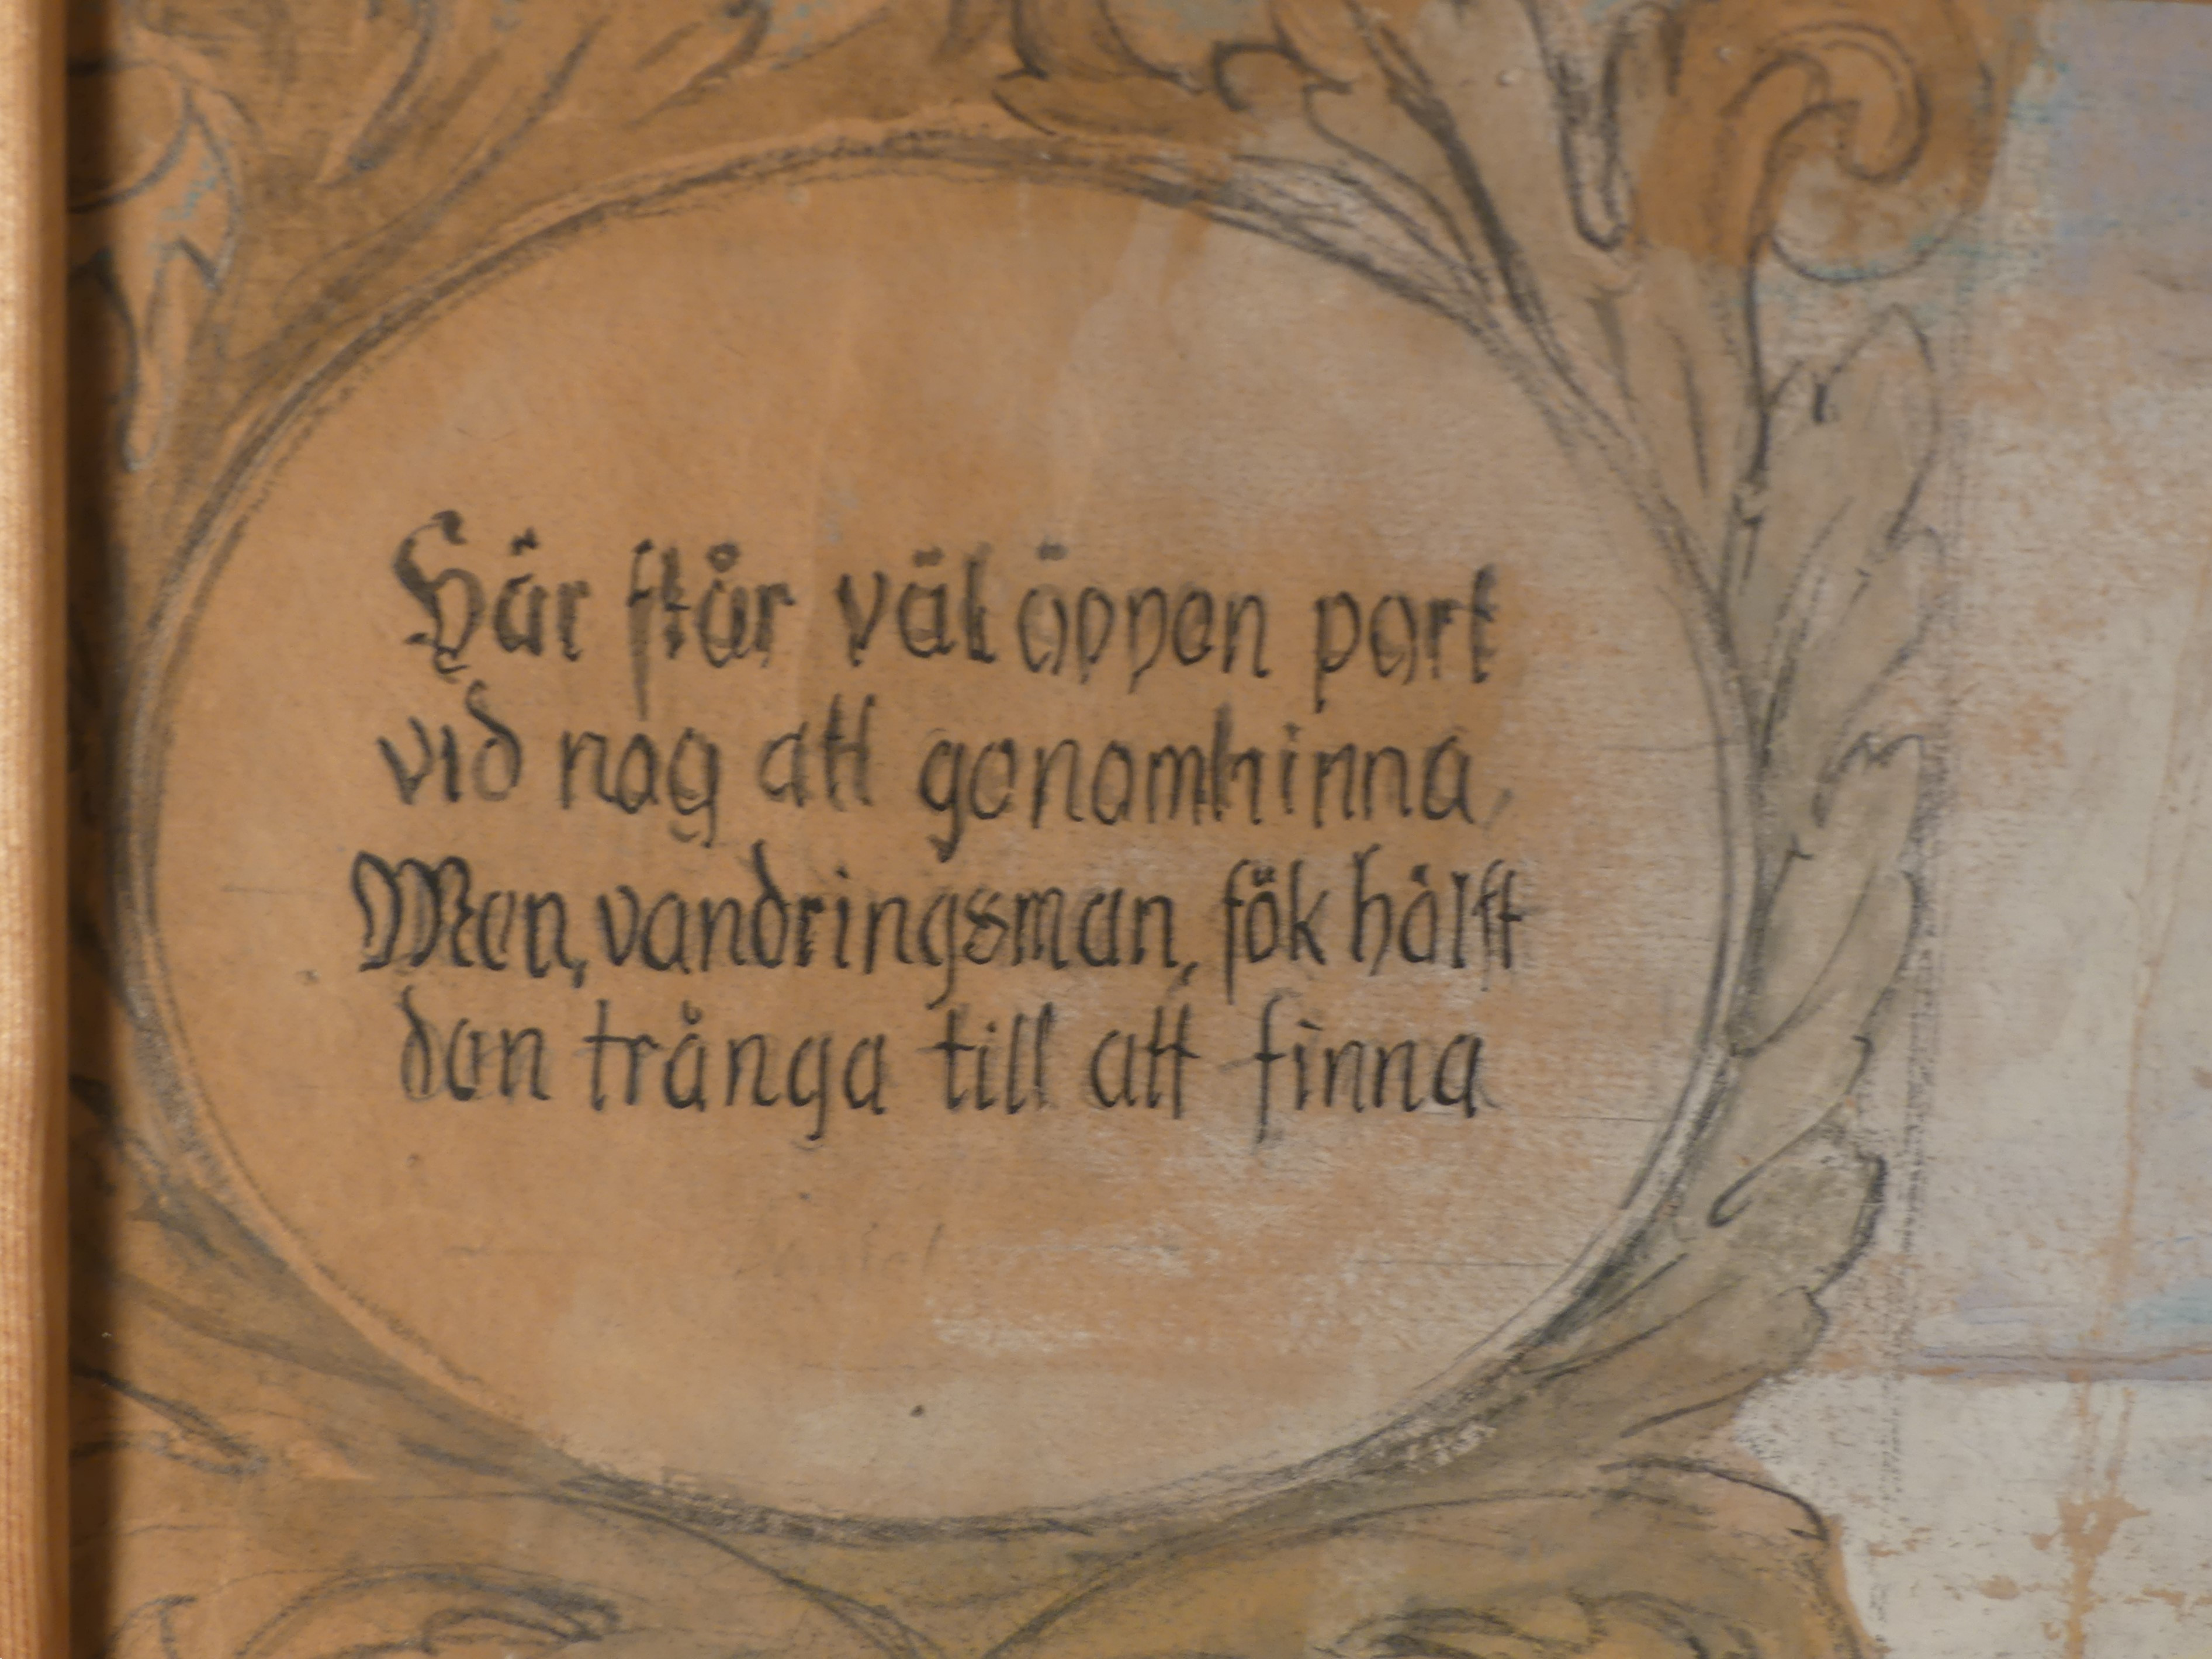 Här ſtår väl öppen port
vid nog att genomhinna,
Men, vandringsman, ſök hälſt
den trånga till att finna